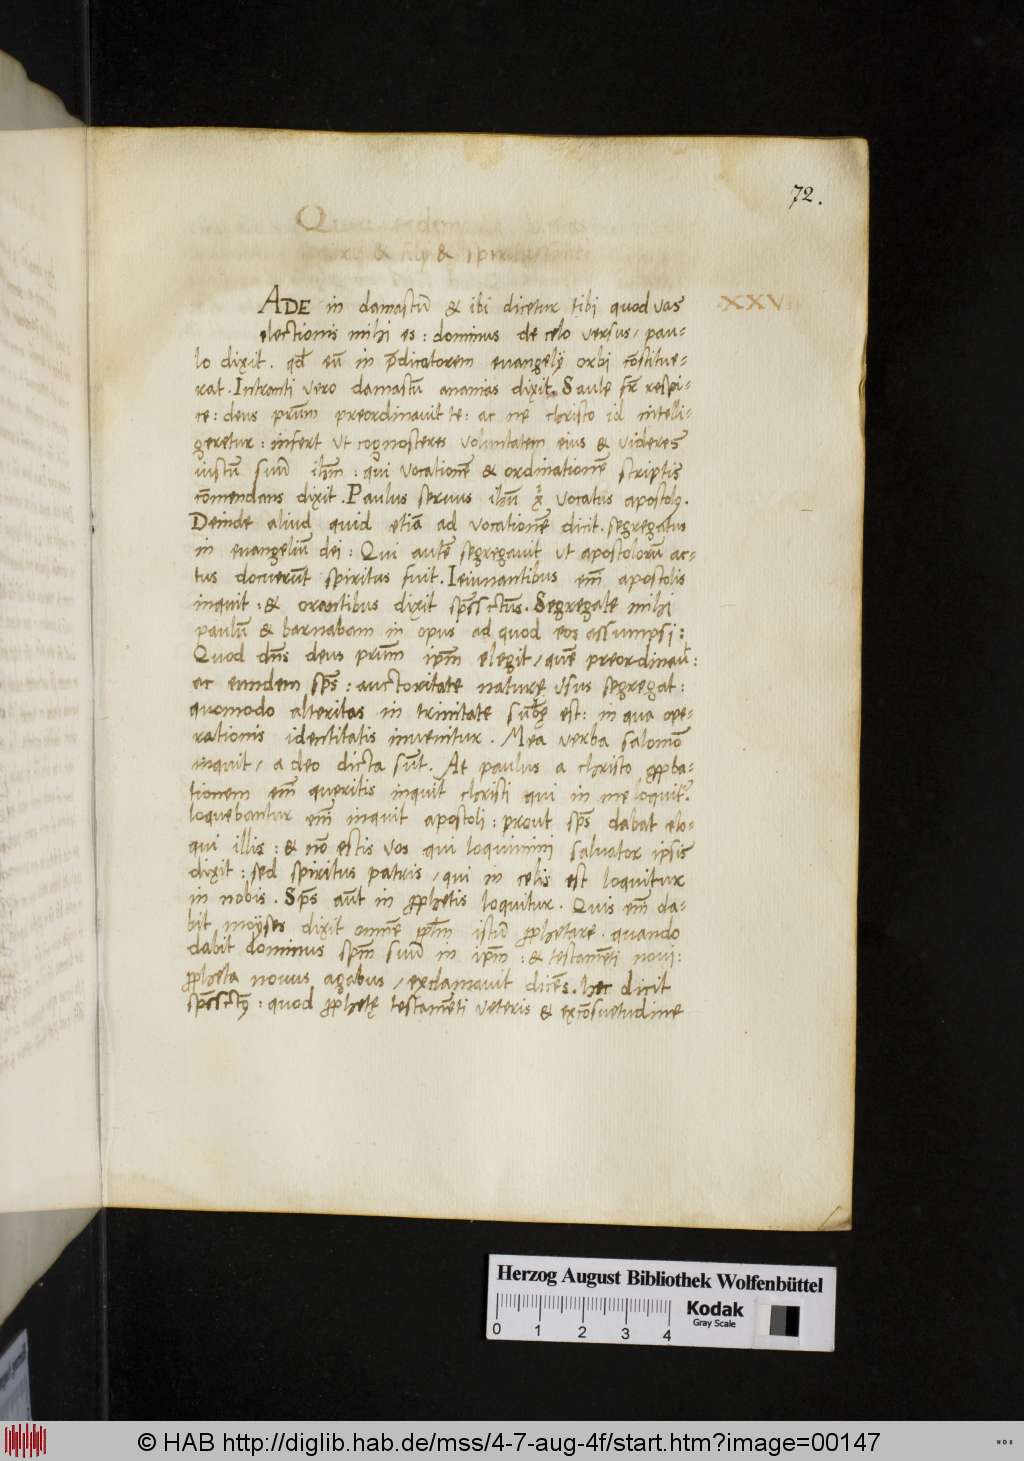 72.
XXV
ADE in damascū & ibi dicetur tibi quod vas
electionis mihi es : dominus de celo versus / pau-
lo dixit . qđ eū in p̄dicatorem euangelÿ orbi cōstitue-
rat . Intranti vero damascū ananias dixit . Saule fr̄ respi-
ce : deus prūm preordinauit te : ac ne christo id intelli-
geretur : infert vt cognosceres voluntatem eius & videres
iustū suū ihm̄ : qui vocationē & ordinationē scriptis
cōmendans dixit . Paulus seruus ihū xp̄i vocatus apostolꝰ .
Deinde aliud quid etiā ad vocationē dicit . segregatus
in euangeliū dei : Qui autē segregauit vt apostolorū ac-
tus docuerūt spiritus fuit . Ieiunantibus em̄ apostolis
inquit : & orantibus dixit sp̄s sctūs . Segregate mihi
paulū & barnabam in opus ad quod eos assumpsi :
Quod dn̄s deus prūm ipm̄ elegit / quē preordinaū :
ac eundem sp̄s : auctoritate naturę vsus segregat :
quomodo alteritas in trinitate est : in qua ope-
rationis identitatis inuenitur . Mea verba salomō
inquit / a deo dicta sūt . At paulus a christo ꝓba-
tionem em̄ queritis inquit christi qui in me loquitꝰ .
loquebantur em̄ inquit apostoli : prout sp̄s dabat elo-
qui illis : & nō estis vos qui loquimini saluator ipsis
dixit : sed spiritus patris / qui in celis est loquitur
in nobis . Sp̄s aūt in ꝓphetis loquitur . Quis em̄ da-
bit moÿses dixit omnē istū ꝓphetare . quando
dabit dominus spm̄ suū in ipm̄ : & testamēti noui :
ꝓpheta nouus agabus / exclamauit dicēs . hec dicit
sp̄s sctꝰ : quod ꝓphetę testamēti veteris & ex cōsuetudine
Herzog August Bibliothek Wolfenbüttel
Kodak
Gray Scale
0 1 2 3 4
© HAB http://diglib.hab.de/mss/4-7-aug-4f/start.htm?image=00147